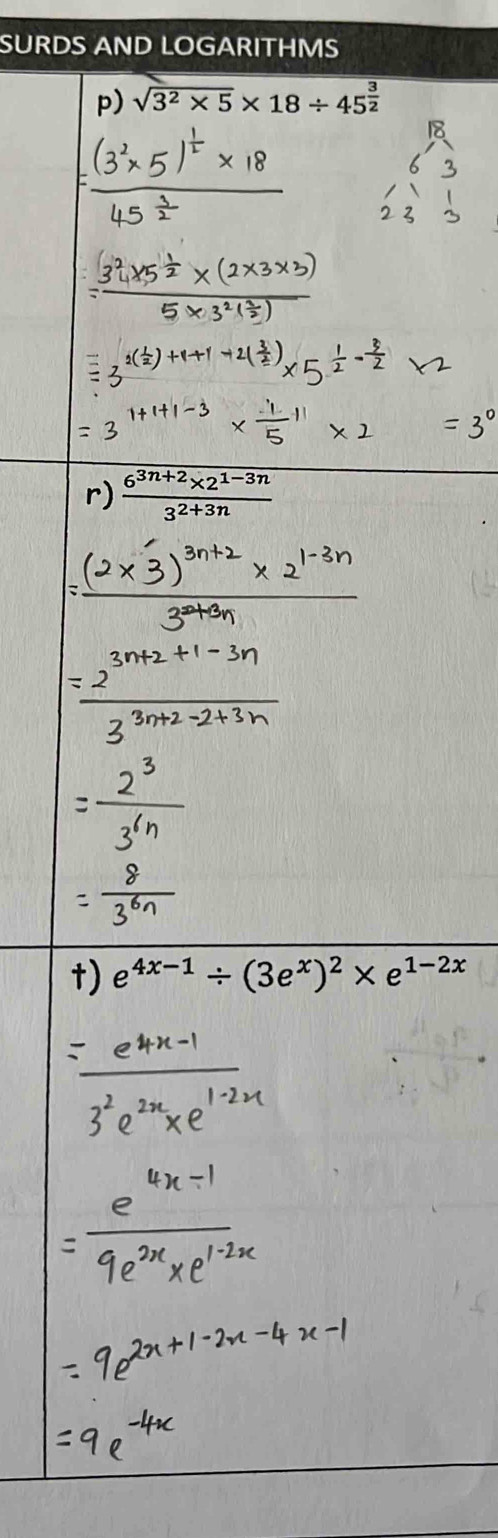 SURDS AND LOGARITHMS
p) √(3² × 5) × 18 ÷ 45^(3/2)
= (3² × 5)^(1/2) × 18 / 45^(3/2)
18
6 3
2 3 3
= (3² × 5^(1/2) × (2×3×3) / 5 × 3^2(3/2)
= 3^(2(1/2)+1+1-2(3/2)) × 5^(1/2 - 3/2) × 2
= 3^(1+1+1-3) × 1/5 × 2 = 3⁰
r) 6^(3n+2) × 2^(1-3n) / 3^(2+3n)
= (2 × 3)^(3n+2) × 2^(1-3n) / 3^(2+3n)
= 2^(3n+2+1-3n) / 3^(3n+2-2+3n)
= 2³ / 3^(6n)
= 8 / 3^(6n)
t) e^(4x-1) ÷ (3e^x)² × e^(1-2x)
= e^(4x-1) / 3² e^(2x) × e^(1-2x)
= e^(4x-1) / 9e^(2x) × e^(1-2x)
= 9e^(2x+1-2x-4x-1)
= 9e^(-4x)